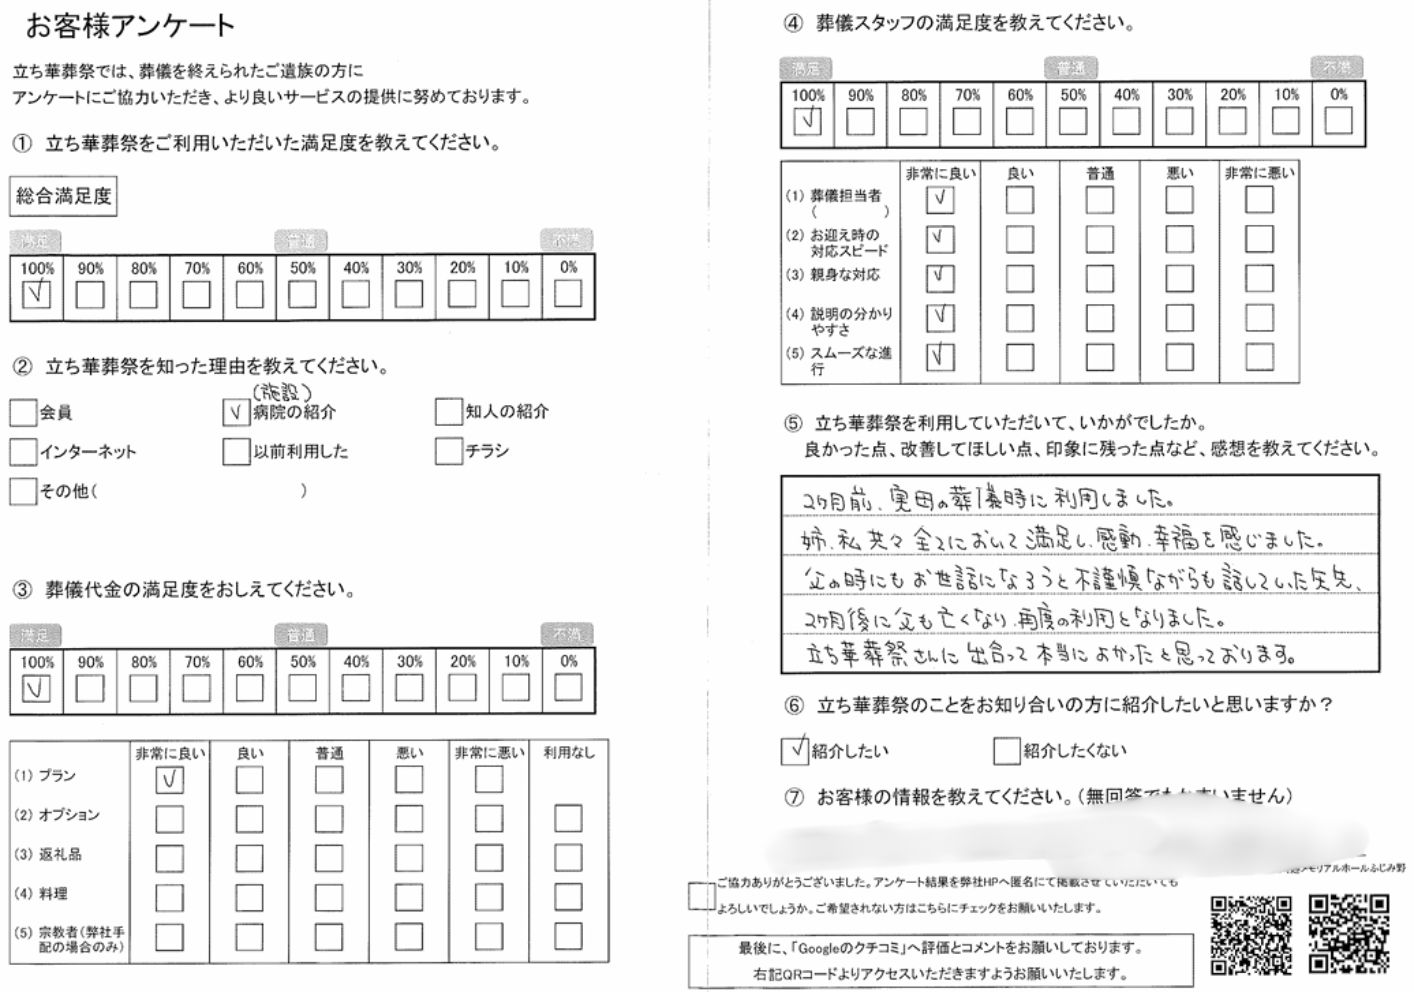 お客様アンケート
立ち華葬祭では、葬儀を終えられたご遺族の方に
アンケートにご協力いただき、より良いサービスの提供に努めております。
① 立ち華葬祭をご利用いただいた満足度を教えてください。
総合満足度
満足 普通 不満
100% 90% 80% 70% 60% 50% 40% 30% 20% 10% 0%
② 立ち華葬祭を知った理由を教えてください。
(施設)
会員 病院の紹介 知人の紹介
インターネット 以前利用した チラシ
その他( )
③ 葬儀代金の満足度をおしえてください。
満足 普通 不満
100% 90% 80% 70% 60% 50% 40% 30% 20% 10% 0%
非常に良い 良い 普通 悪い 非常に悪い 利用なし
(1) プラン
(2) オプション
(3) 返礼品
(4) 料理
(5) 宗教者(弊社手
配の場合のみ)
④ 葬儀スタッフの満足度を教えてください。
満足 普通 不満
100% 90% 80% 70% 60% 50% 40% 30% 20% 10% 0%
非常に良い 良い 普通 悪い 非常に悪い
(1) 葬儀担当者
( )
(2) お迎え時の
対応スピード
(3) 親身な対応
(4) 説明の分かり
やすさ
(5) スムーズな進
行
⑤ 立ち華葬祭を利用していただいて、いかがでしたか。
良かった点、改善してほしい点、印象に残った点など、感想を教えてください。
2ヶ月前、実母の葬儀時に利用しました。
姉、私共々全てにおいて満足し、感動、幸福を感じました。
父の時にもお世話になろうと不謹慎ながらも話していた矢先、
2ヶ月後に父も亡くなり、再度の利用となりました。
立ち華葬祭さんに出会って本当によかったと思っております。
⑥ 立ち華葬祭のことをお知り合いの方に紹介したいと思いますか？
紹介したい 紹介したくない
⑦ お客様の情報を教えてください。(無回答でもかまいません)
メモリアルホールふじみ野
ご協力ありがとうございました。アンケート結果を弊社HPへ匿名にて掲載させていただいても
よろしいでしょうか。ご希望されない方はこちらにチェックをお願いいたします。
最後に、「Googleのクチコミ」へ評価とコメントをお願いしております。
右記QRコードよりアクセスいただきますようお願いいたします。